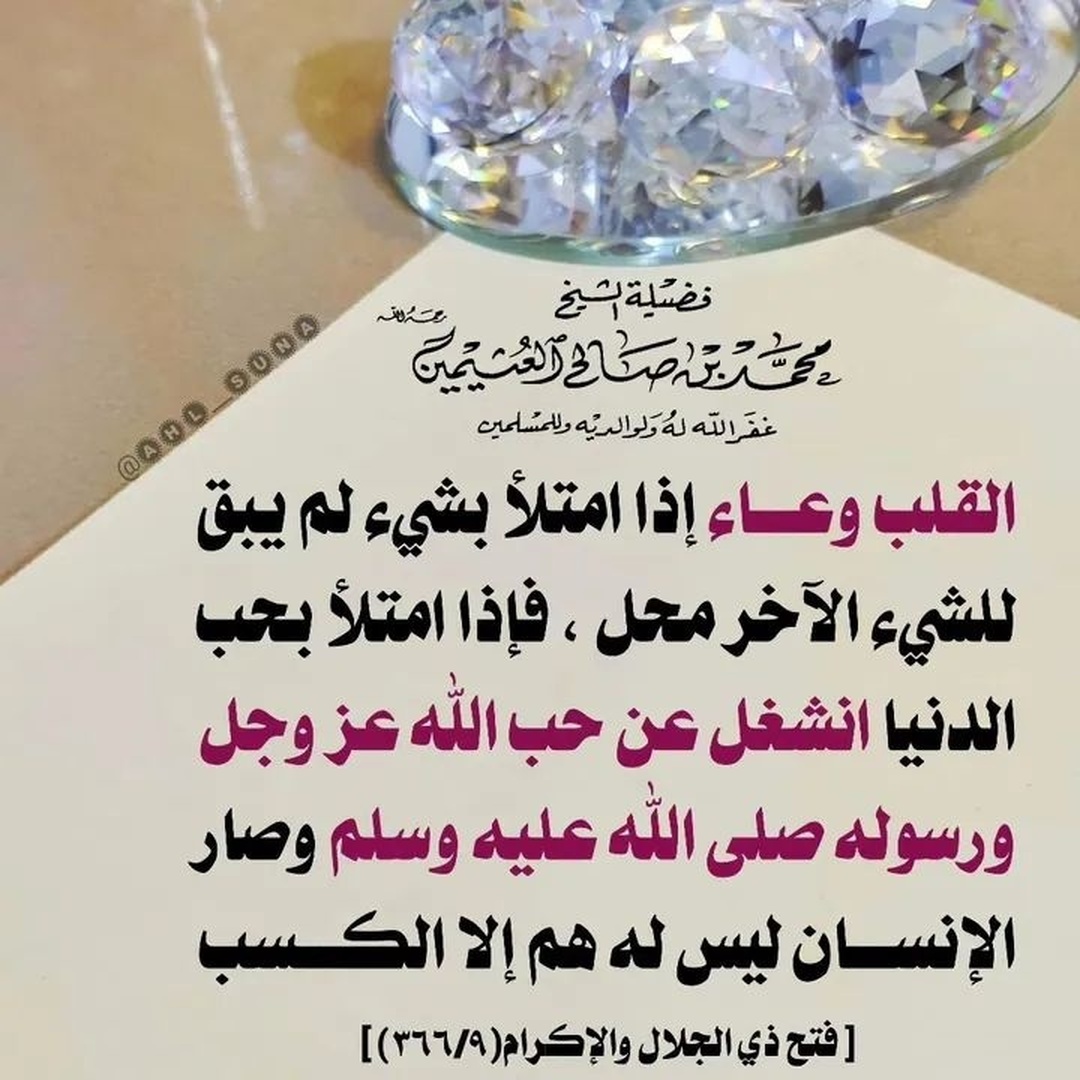 فضيلة الشيخ
محمد بن صالح العثيمين رحمه الله
غفر الله له ولوالديه وللمسلمين
@AHL_SUNA
القلب وعـــاء إذا امتلأ بشيء لم يبق
للشيء الآخر محل ، فإذا امتلأ بحب
الدنيا انشغل عن حب الله عز وجل
ورسوله صلى الله عليه وسلم وصار
الإنســـان ليس له هم إلا الكـــسب
[ فتح ذي الجلال والإكرام(٣٦٦/٩)]